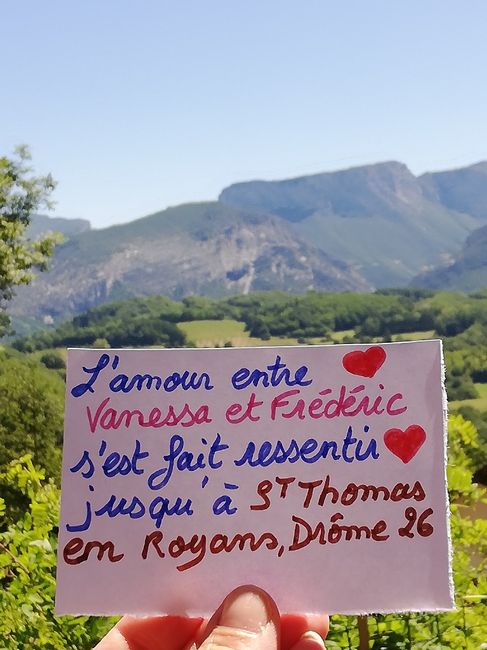 L'amour entre
Vanessa et Frédéric
s'est fait ressentir
jusqu'à ST Thomas
en Royans, Drôme 26